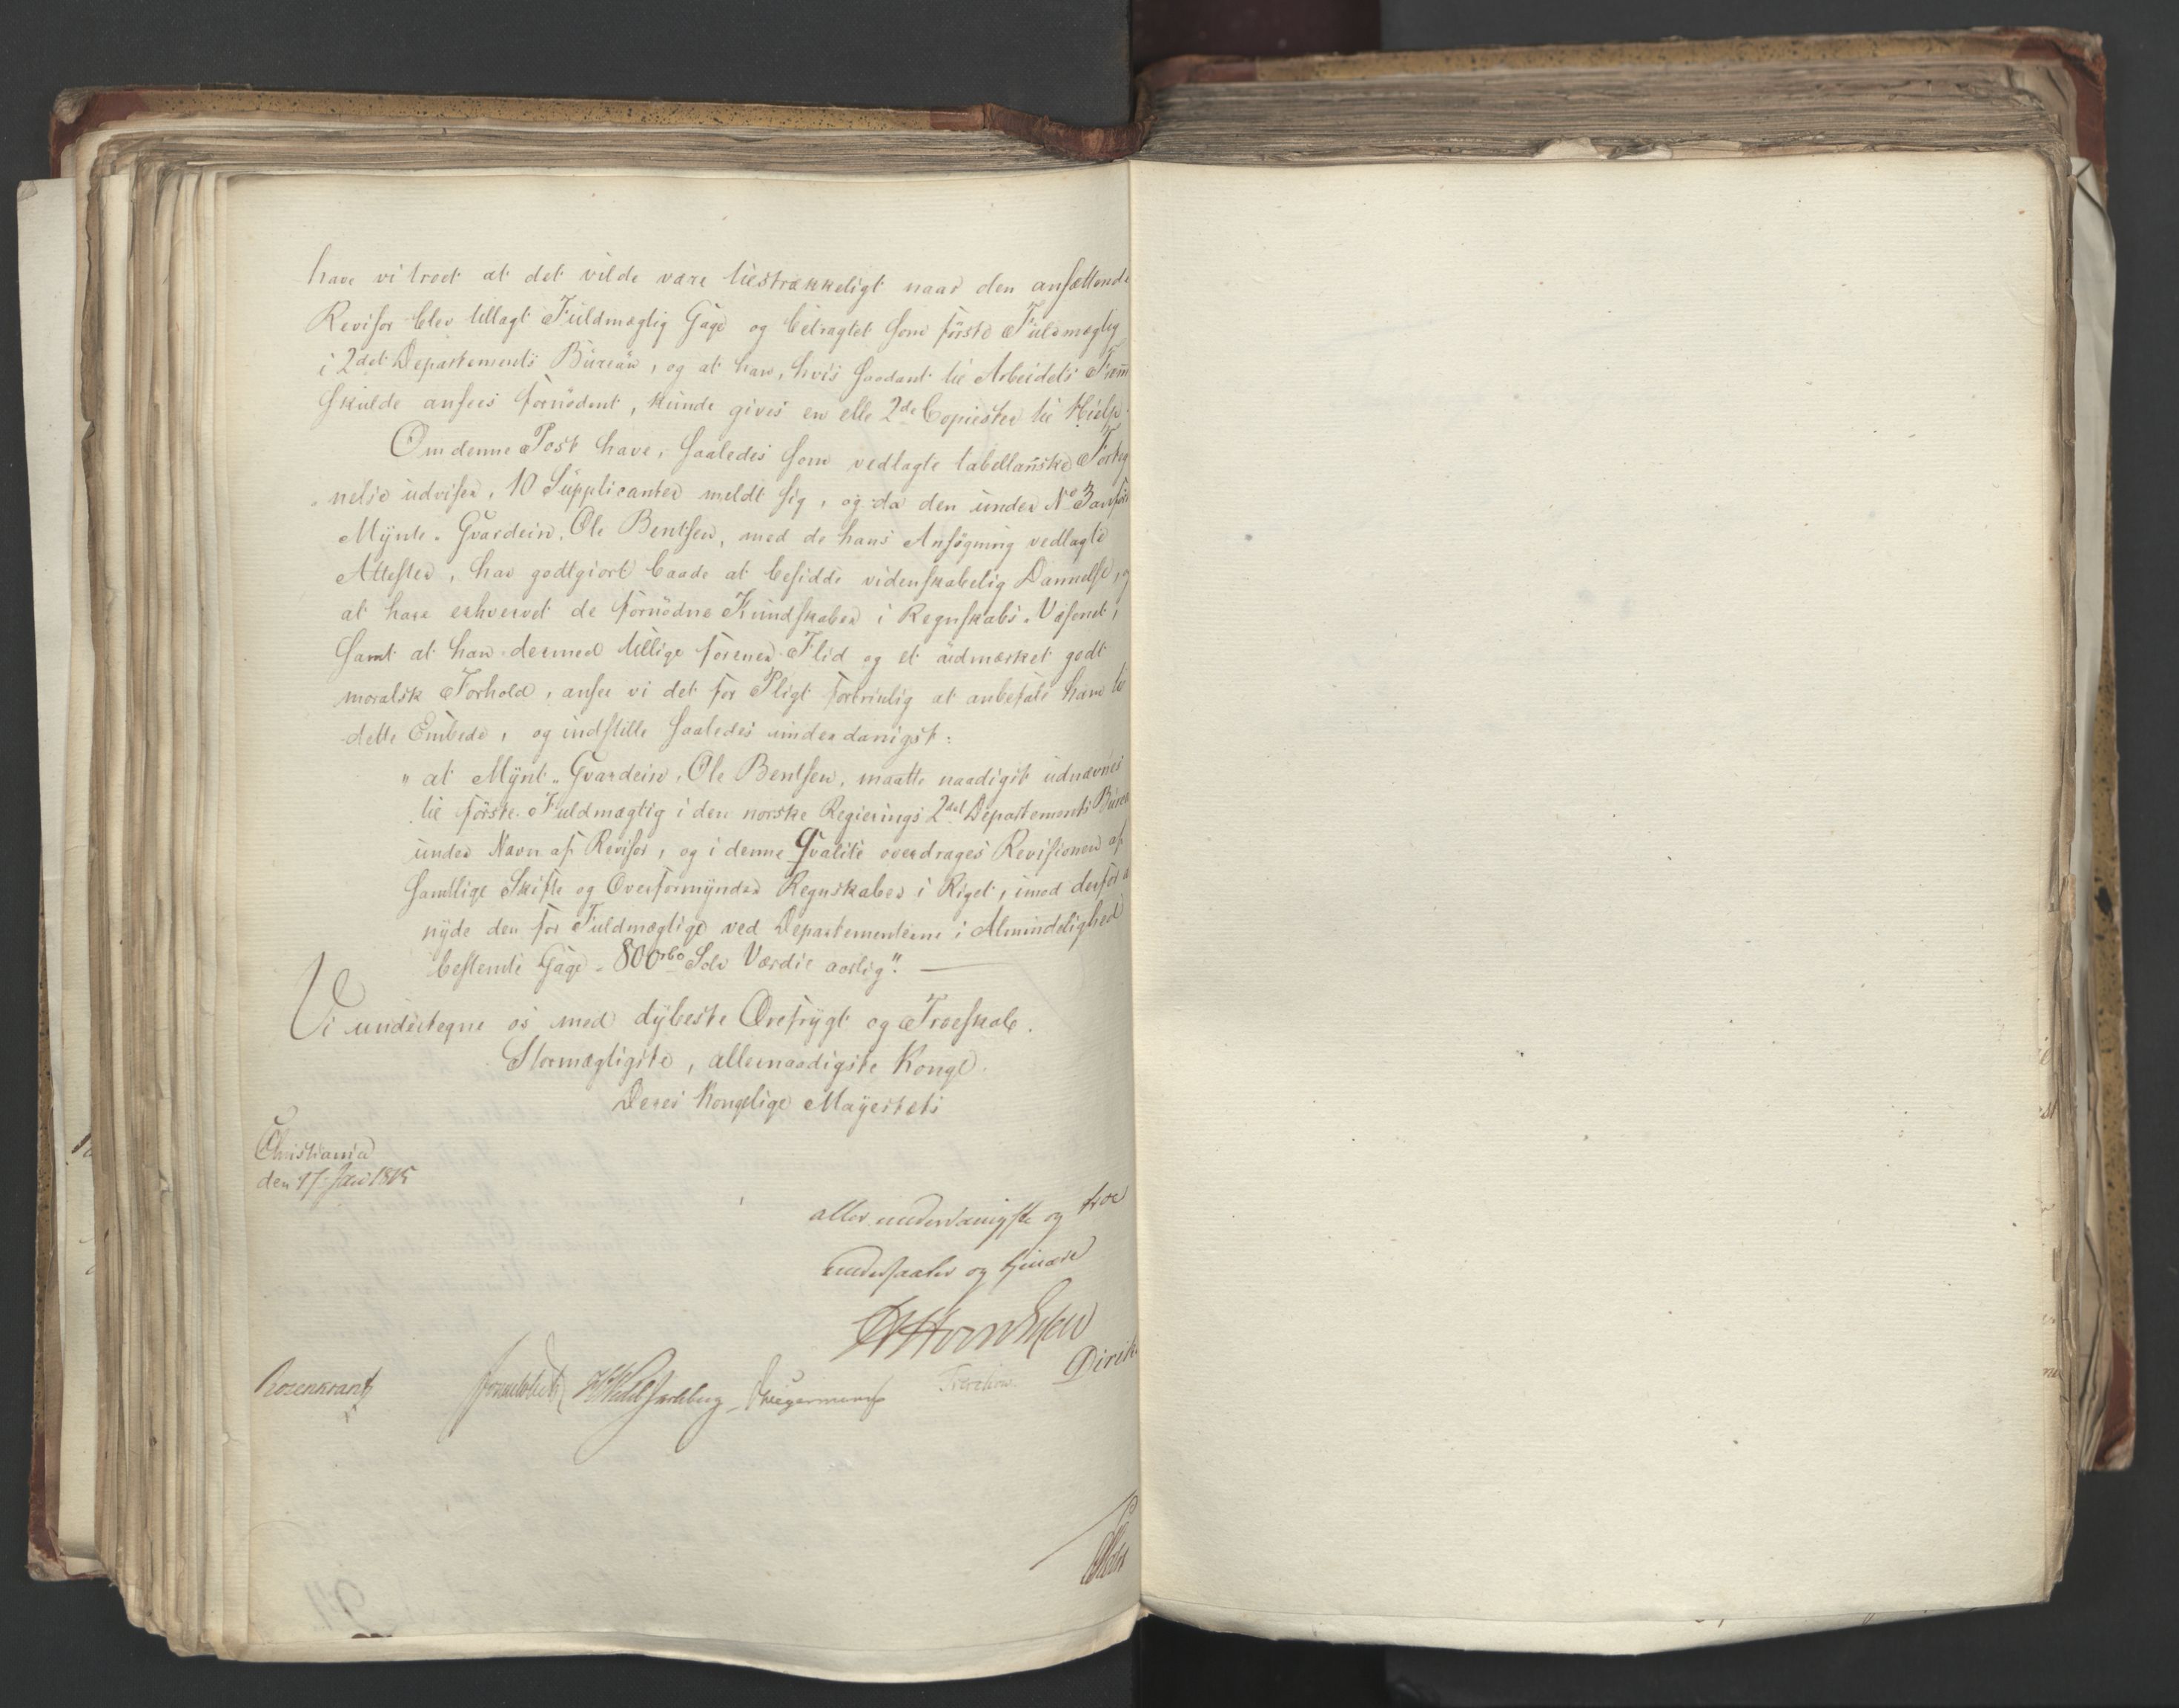 have vi troet at det vilde være tilstrækkeligt naar den ansættende
Revisor blev tillagt Fuldmægtig Gage og betragtet som første Fuldmægtig
i 2det Departements Büreau, og at han, hvis saadant til Arbeidets Fremm
skulde ansees fornødent, kunde gives en elle 2de Copiister til Hielp.
Om denne Post have, saaledes som vedlagte tabellariske Forteg
nelse udviser, 10 Supplicanter meldt sig, og da den under No 3 anførte
Mynt-Gvardein, Ole Bentsen, med de hans Ansøgning vedlagte
Attester, har godtgiort baade at besidde videnskabelig Dannelse, og
at have erhvervet de fornødne Kundskaber i Regnskabs-Væsenet,
samt at han dermed tillige forener Flid og et udmærket godt
moralsk Forhold, ansee vi det for Pligt fortrinlig at anbefale ham til
dette Embede, og indstille saaledes underdanigst:
" at Mynt-Gvardein, Ole Bentsen, maatte naadigst udnævnes
til første Fuldmægtig i den norske Regierings 2det Departements Büreau
under Navn af Revisor, og i denne Qvalité overdrages Revisionen af
samtlige Skifte og Overformynder Regnskaber i Riget, imod derfor a
nyde den for Fuldmægtige ved Departementerne i Almindelighed
bestemte Gage - 800 rbd Sølv Værdie aarlig". —
Vi undertegne os med dybeste Ærefrygt og Troeskab.
Stormægtigste, allernaadigste Konge.
Deres Kongelige Mayestæts
Christiania
den 17 Juni 1815
allerunderdanigste og troe
undersaatter og tienere
Diriks
Rosenkrantz Sommerhielm HWedel Jarlsberg Krieger Treschow